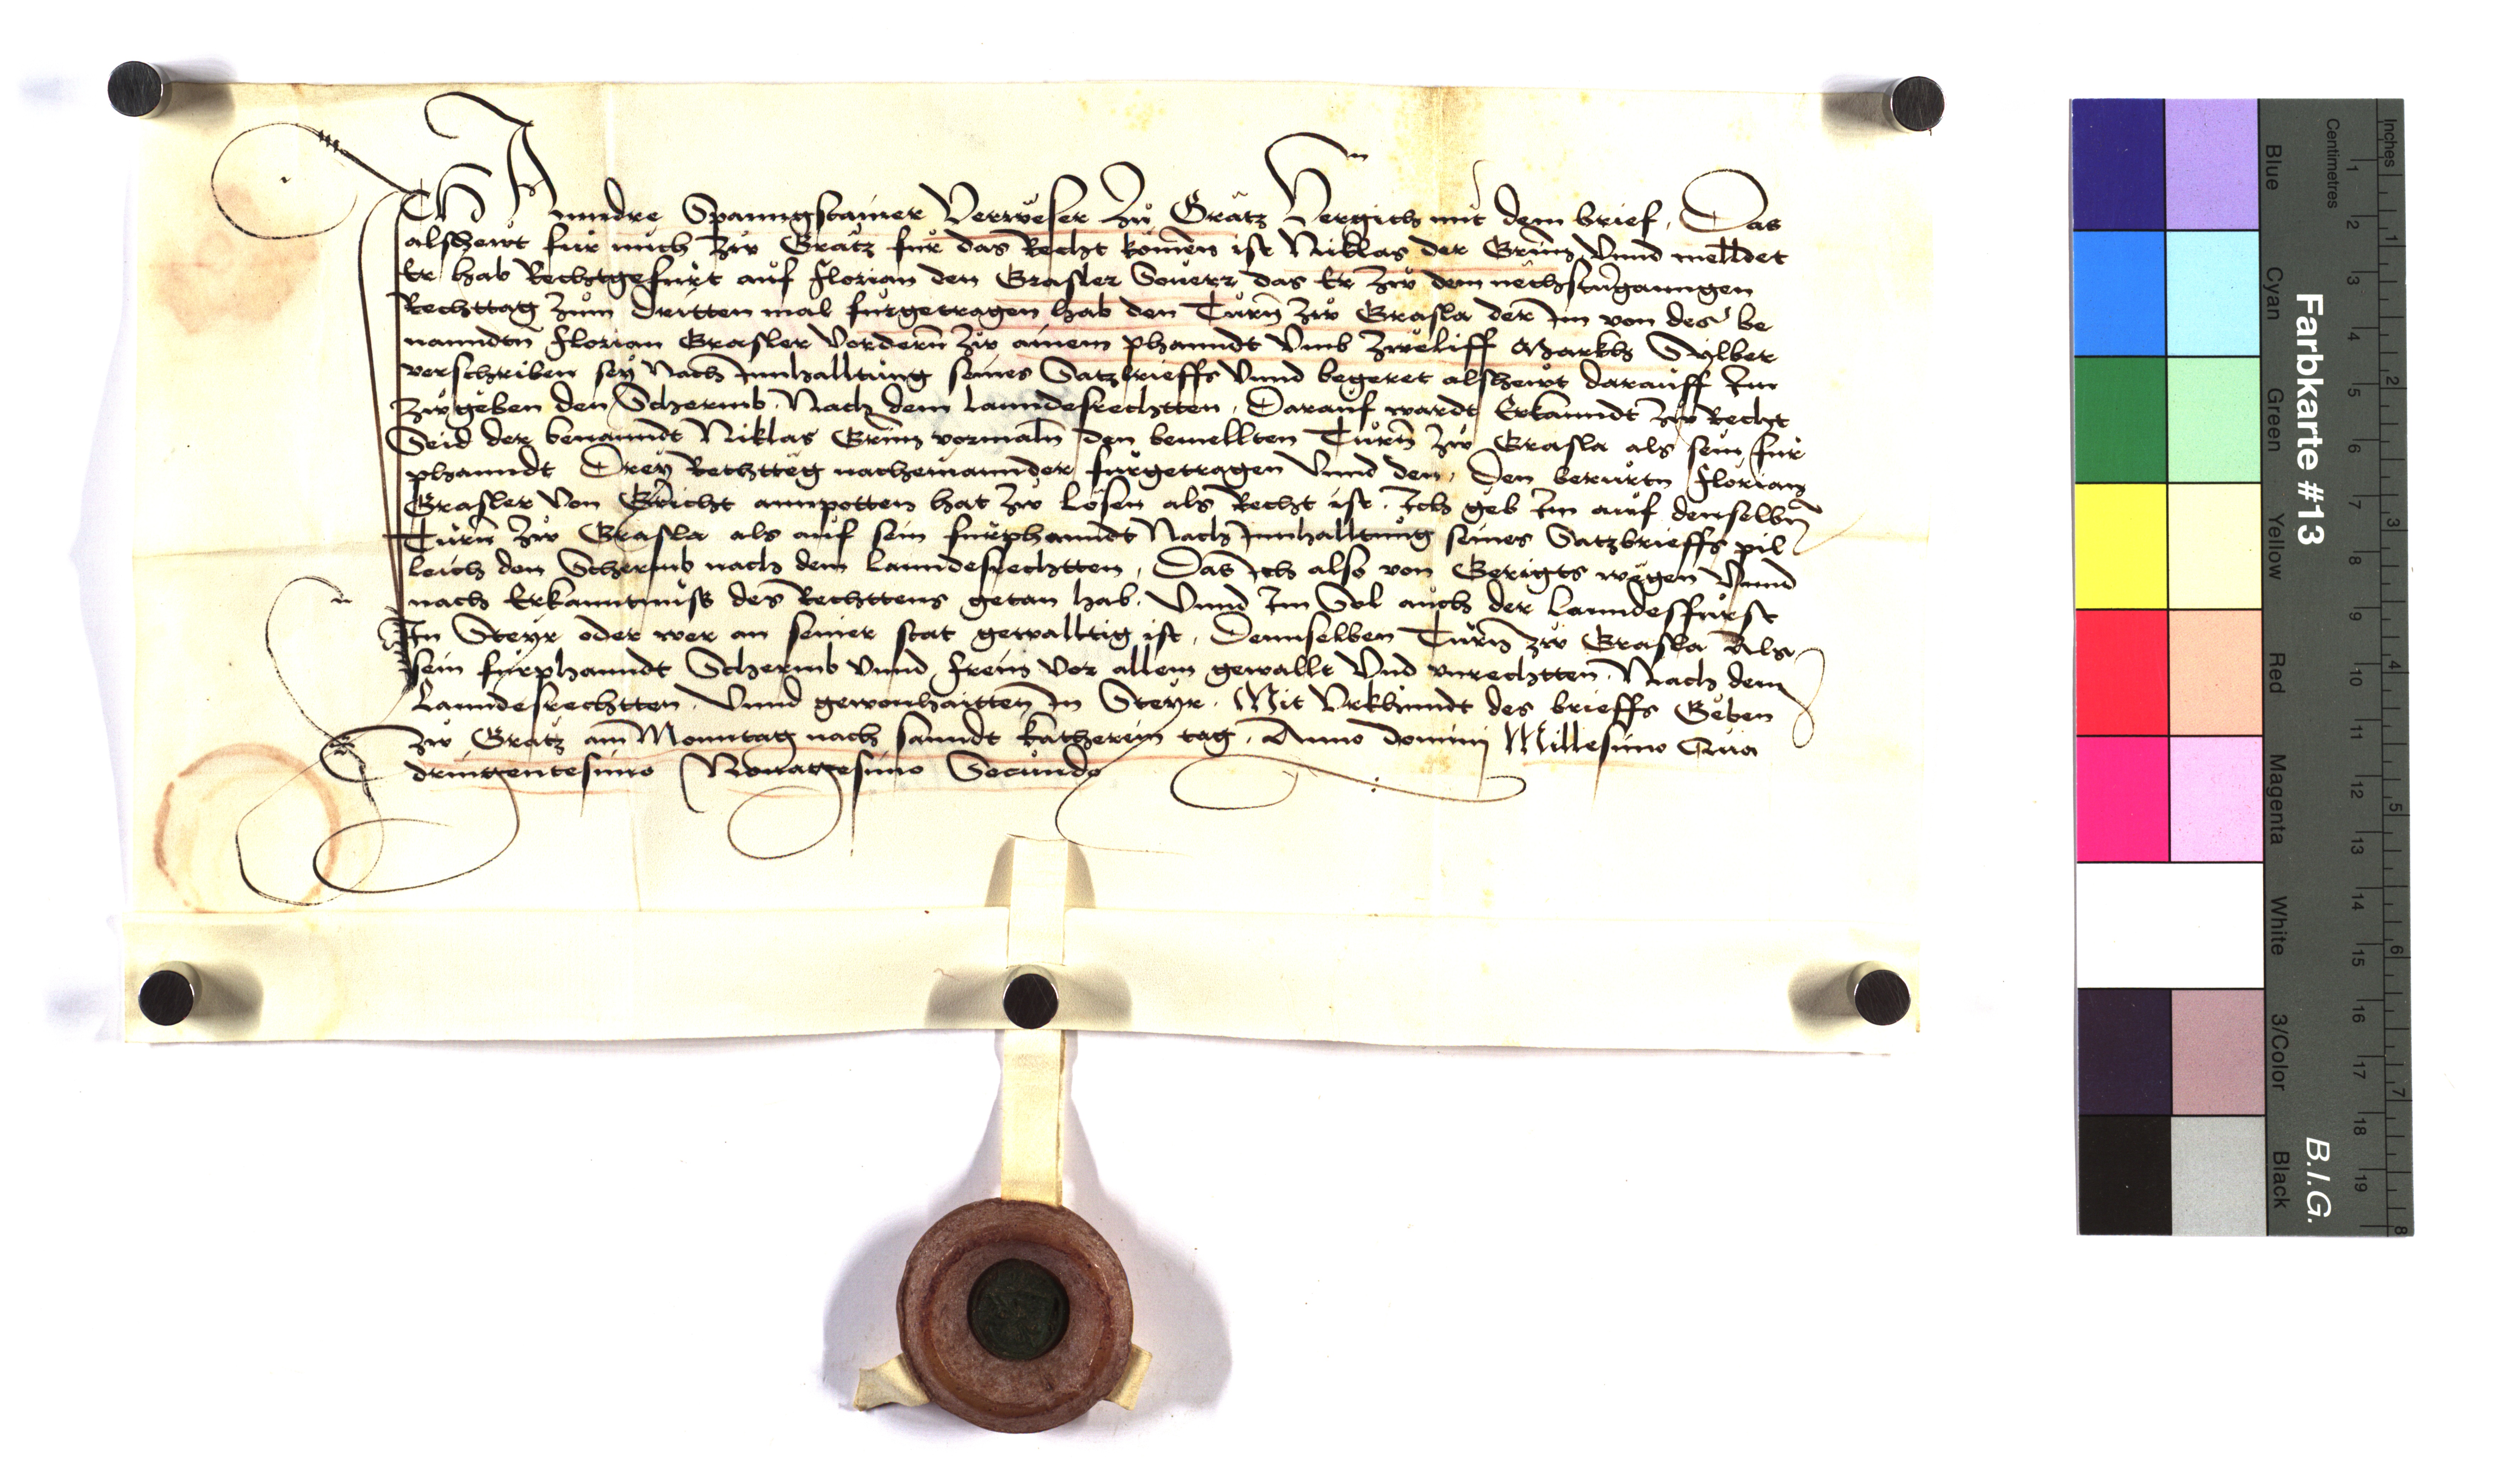 Ich Anndre Spanngstainer Verweser Zů Grätz Vergich mit dem brief, Das
alshewt für mich Zw Grätz für das Recht komen ist Niklas der Grünz Vnnd melldet
Er hab Rechtgefürt auf Florian den Grasler Souerr das Er Zw dem nechstuerganngen
Rechttag Zum dritten mal fürgetragen hab den Turn Zw Grasla der Im von des be
nanndtn Florian Grasler Vordern Zw ainem phanndt Vmb Zweliff Markh Sylber
verschriben sey Nach Innhalltung seines Satzbrieffs Vnnd begeret alshewt darauff Im
Zwgeben den Schermb. Nach dem Lanndesrechtten. Darauf wardt Erkanndt Zw Recht
Seid der benanndt Niklas Grünz vormaln den bemellten Turn Zw Grasla als sein für
phanndt Drey Rechtteg nacheinannder fürgetragen Vnnd den, Den berurtn Florian
Grasler Von Gericht annpotten hat Zw Lösen als Recht ist. Ich geb Im auf denselbn
Turn Zw Grasla als auf sein fürphanndt Nach Innhalltung seines Satzbrieffs pil
leich den Schermb nach dem Lanndesrechtten, Das ich also von Gerigts wegen Vnnd
nach Erkanntnuss des Rechttens getan hab. Vnnd Im Sol auch der Lanndesfürst
In Steyr oder wer an seiner stat gewalltig ist, Dennselben Turn zw Grasla Als
sein fürphanndt Schermb Vnnd frein Vor allem gewallt Vnd vnrechtten. Nach dem
Lanndesrechtten. Vnnd gewonhaitten in Steyr. Mit Vrkhundt des brieffs Geben
Zw Grätz am Monntag nach sanndt Katherein tag. Anno domini Millesimo Qua
dringentesimo Nonagesimo Secundo
Farbkarte #13
B.I.G.
Centimetres
Inches
Blue
Cyan
Green
Yellow
Red
Magenta
White
3/Color
Black
1 2 3 4 5 6 7 8 9 10 11 12 13 14 15 16 17 18 19
1 2 3 4 5 6 7 8